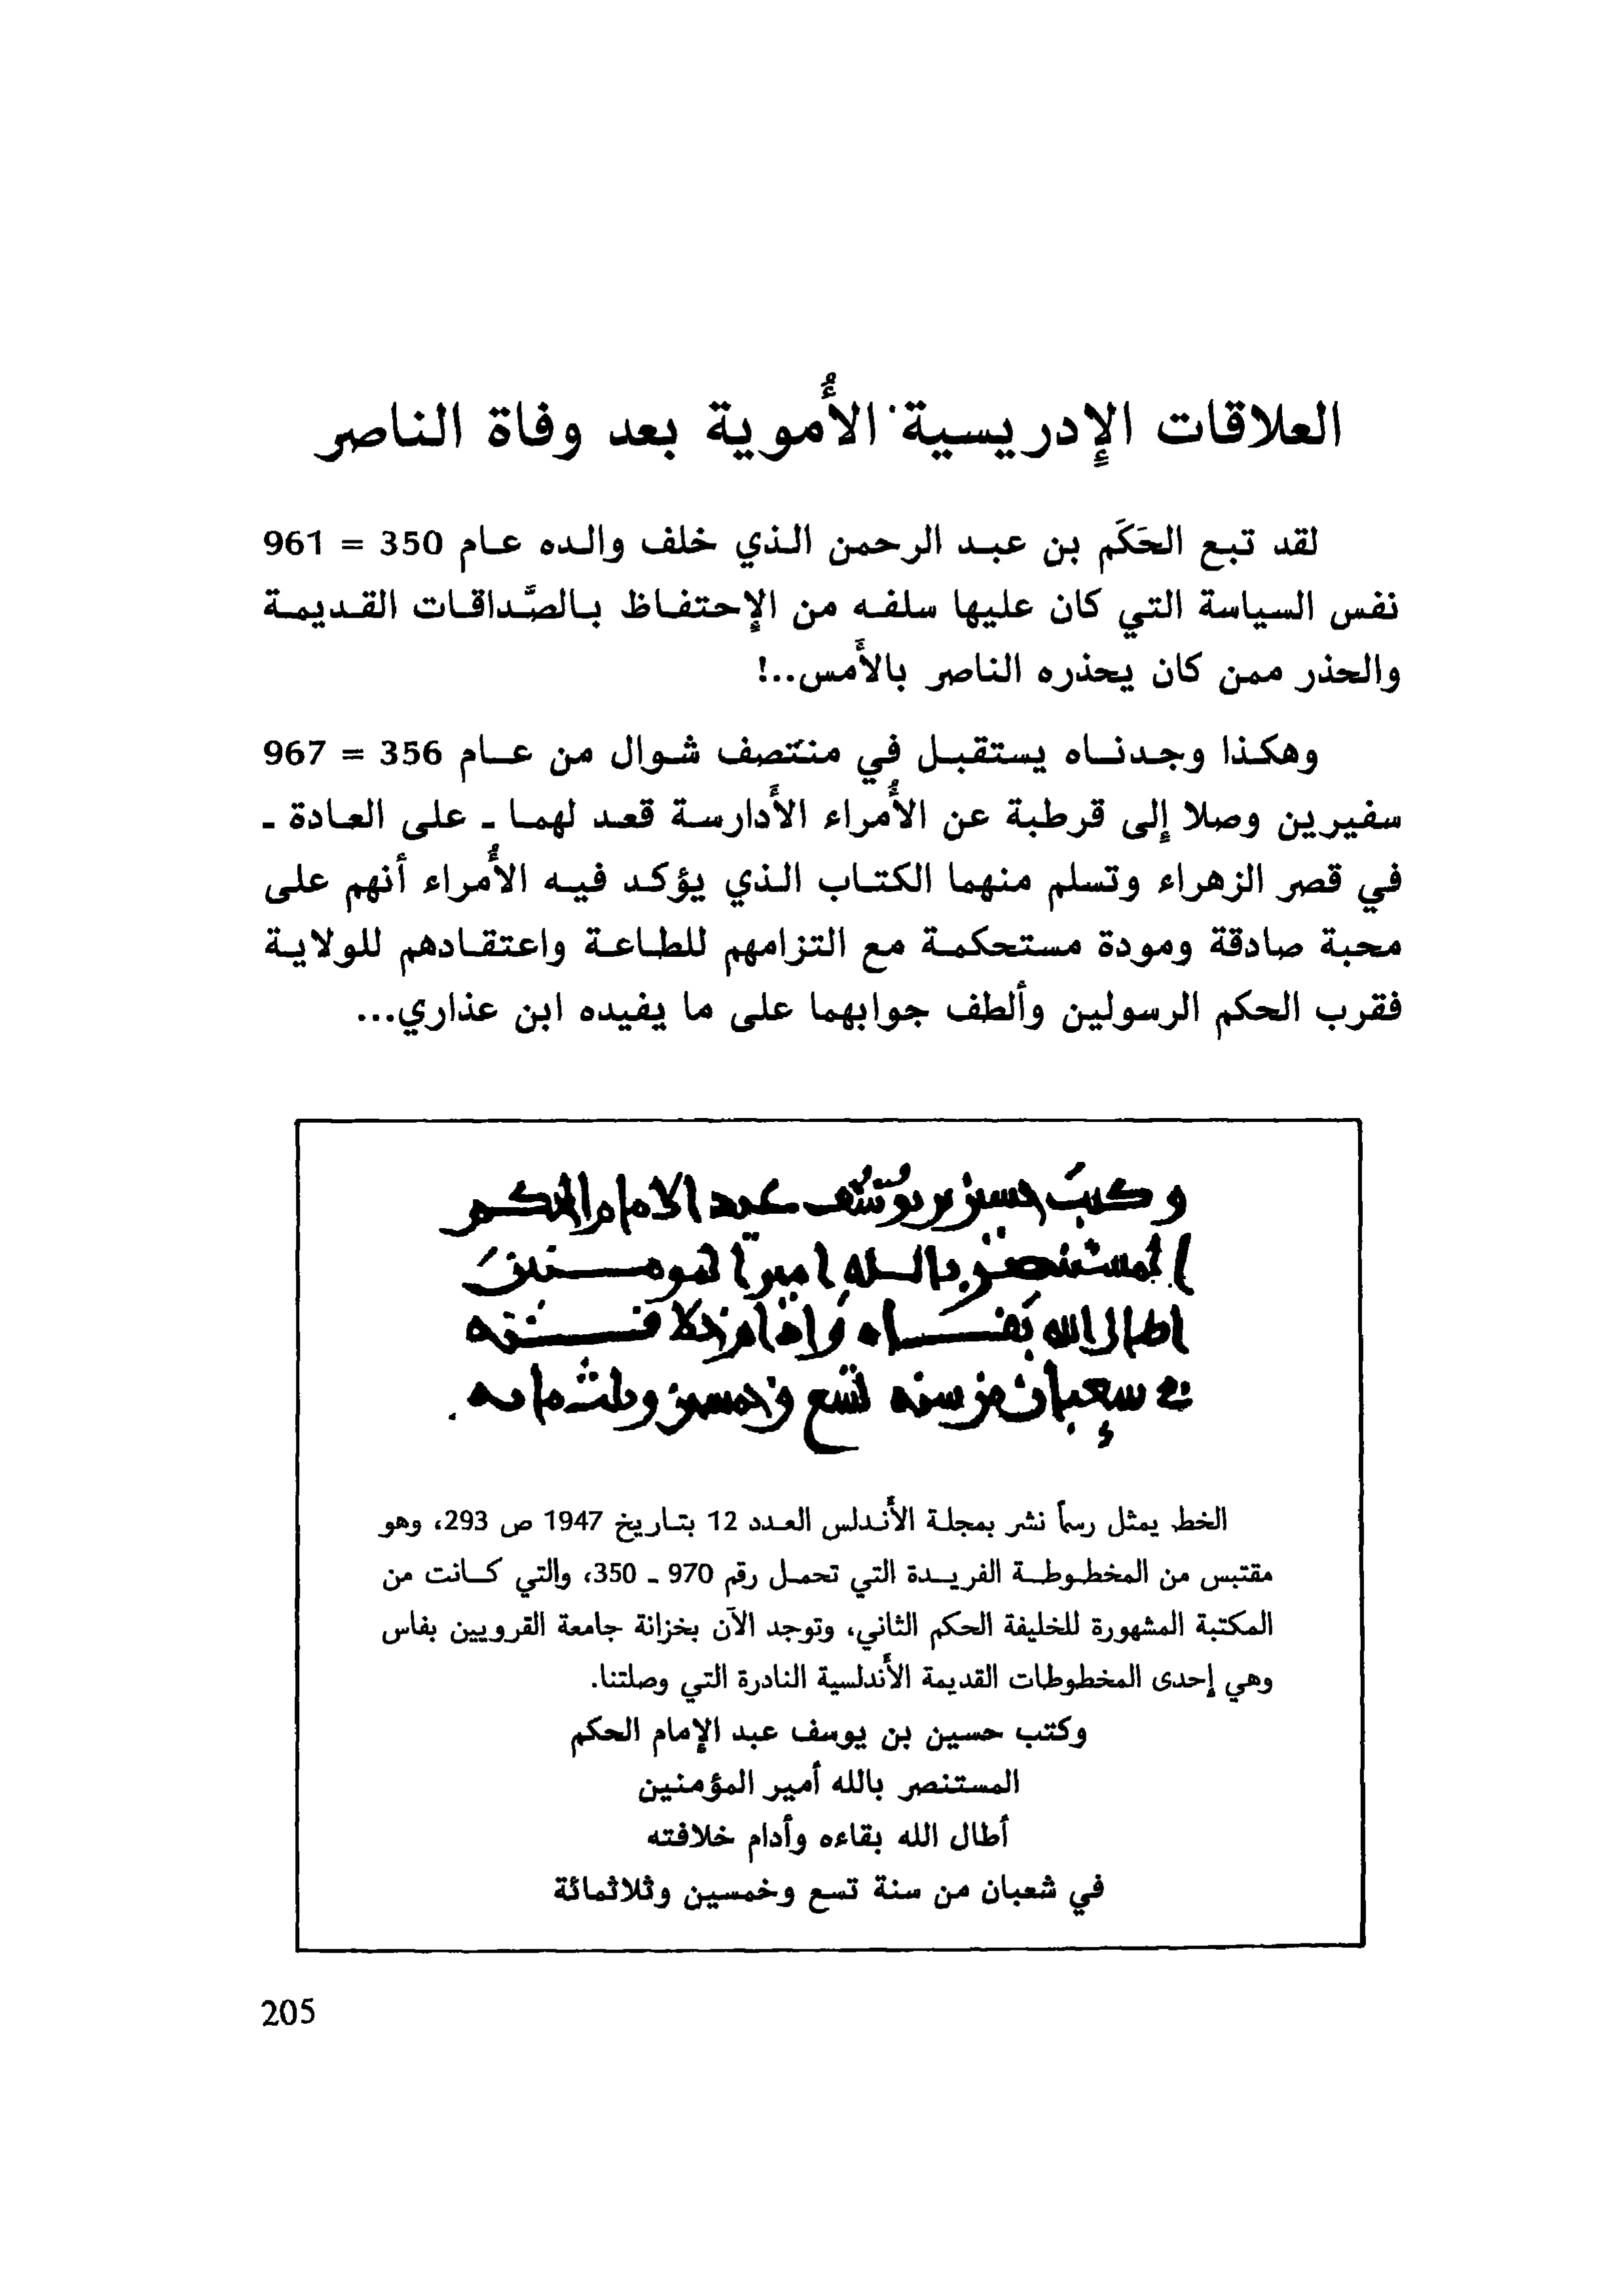 العلاقات الإدريسية الأُموية بعد وفاة الناصر
لقد تبع الحَكَم بن عبد الرحمن الذي خلف والده عام 350 = 961
نفس السياسة التي كان عليها سلفه من الإحتفاظ بالصَّداقات القديمة
والحذر ممن كان يحذره الناصر بالأَمس..!
وهكذا وجدناه يستقبل في منتصف شوال من عام 356 = 967
سفيرين وصلا إلى قرطبة عن الأُمراء الأَدارسة قعد لهما ـ على العادة ـ
في قصر الزهراء وتسلم منهما الكتاب الذي يؤكد فيه الأُمراء أنهم على
محبة صادقة ومودة مستحكمة مع التزامهم للطاعة واعتقادهم للولاية
فقرب الحكم الرسولين وألطف جوابهما على ما يفيده ابن عذاري...
وكتب حسين بن يوسف عبد الامام الحكم
المستنصر بالله امير المومنين
اطال الله بقاه وادام خلافته
في شعبان من سنه تسع وخمسين وثلثمايه
الخط يمثل رسماً نشر بمجلة الأَندلس العدد 12 بتاريخ 1947 ص 293، وهو
مقتبس من المخطوطة الفريدة التي تحمل رقم 970 ـ 350، والتي كانت من
المكتبة المشهورة للخليفة الحكم الثاني، وتوجد الآن بخزانة جامعة القرويين بفاس
وهي إحدى المخطوطات القديمة الأَندلسية النادرة التي وصلتنا.
وكتب حسين بن يوسف عبد الإمام الحكم
المستنصر بالله أمير المؤمنين
أطال الله بقاءه وأدام خلافته
في شعبان من سنة تسع وخمسين وثلاثمائة
205